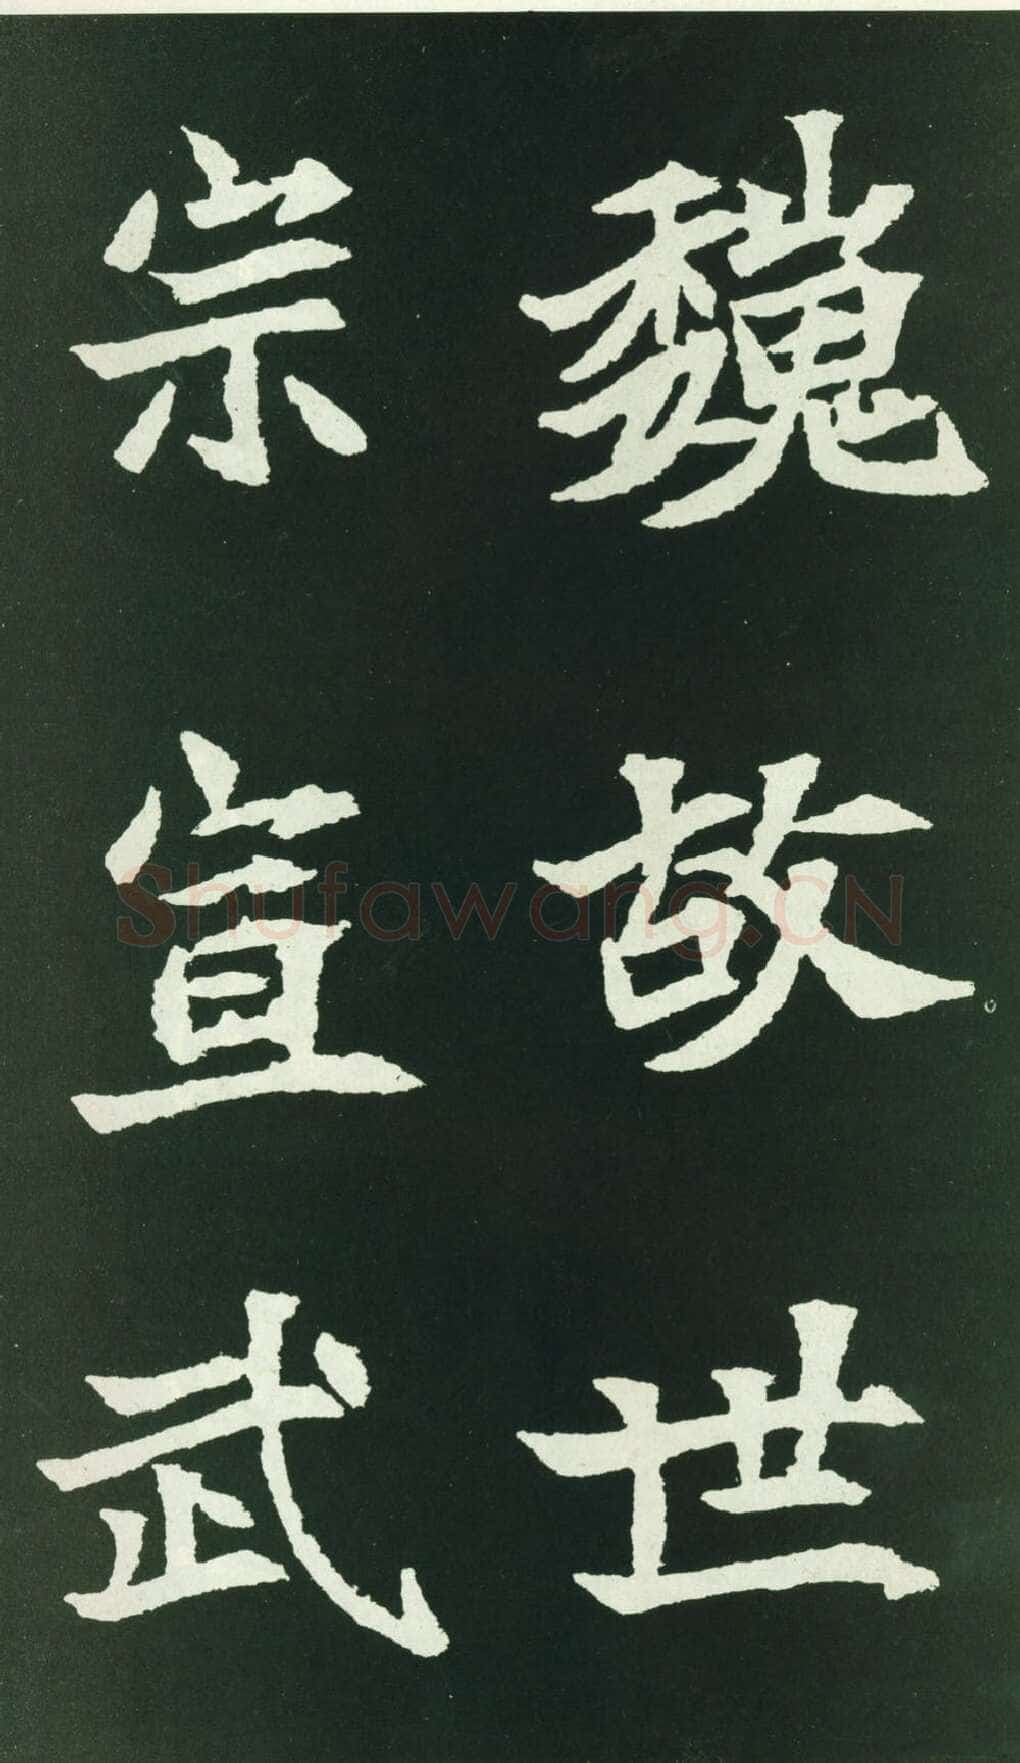 魏故世
宗宣武
Shufawang.CN